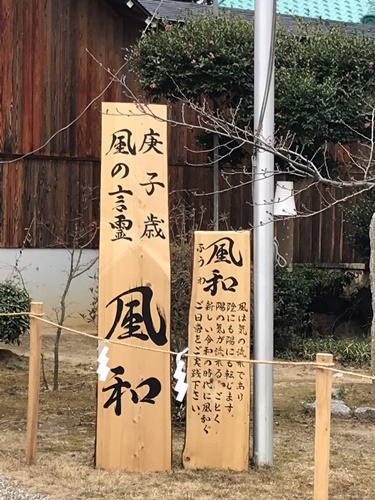 庚子歳
風の言霊
風和
風和
ふうわ
風は気の流れであり
陰にも陽にも転じます。
陽の気が流れる。ごとく
新しい令和の時代に風和ぐ
ご日常をご実践下さい。